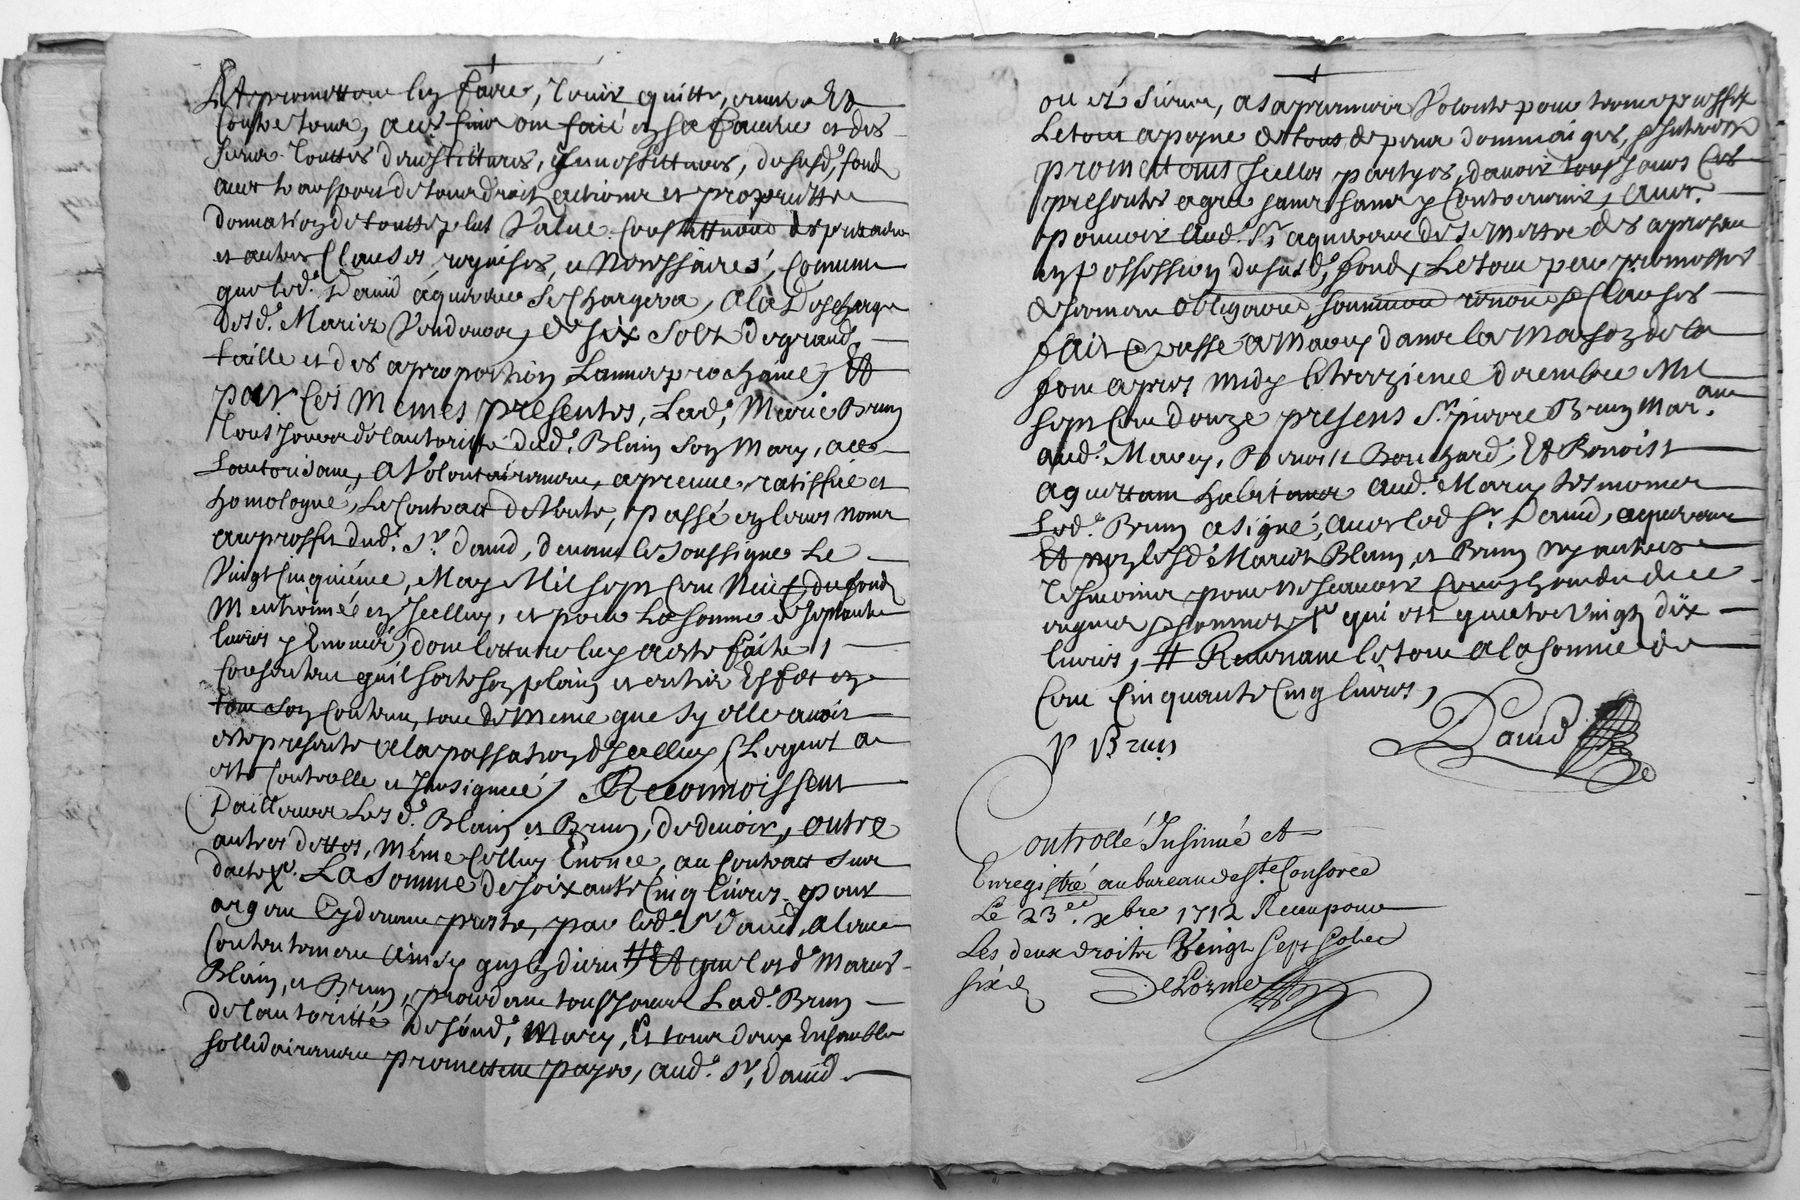 Et promettant luy faire, Tenir quitte, Et
Contre tous, avec en sa faveur et des
Sieur Touttes devestitures, Investittures, dususd.t fond
avec transport de tous droits actions et proprietté
donnation de touttes plus Value Constittuons de precaire
et autres Clauses, requises, et Necessaires, Comme
que led.t David aquereur Se Chargera, A la Descharge
desd.t Mariez Vendeurs, de six Solz de grand
taille et des a proportion L'année prochaine, Et
par Ces Mêmes presentes, Lad.e Marie Brun
Tousjours de l'autoritté dud.t Blain Son Mary, a ce
L'autorisant, a Volontairement, apreuvé, ratiffié et
homologué, Le Contract de Vente, passé en leurs noms
au proffit dud.t S.r David, devant le Soussigné Le
Vingt Cinquiéme, May Mil Sept Cent Neuf du fond
Mentionné en Icelluy, et pour La Somme de Septante
livres y Enoncé, dont letture luy a esté faite,
Consentant quil Sorte Son plain et entier Effet en
tout Son Contenu, tout de même que Sy elle avoit
esté presente a la passation d'Icelluy Lequel a
esté Controllé et Insignué / Reconnoissent
D'ailleurs Lesd.t Blain et Brun, de devoir, outre
autres dettes, même Celluy Enoncé, au Contract Sur
datté La Somme de Soixante Cinq livres, pour
argent Cydevant presté, par led.t S.r David, a leur
Contentement ainsy quilz dient # Et que lesd.t Mariés
Blain, et Brun, procedant tousjours Lad.e Brun
de l'autoritté de Sond.t Mary, Et tous deux Ensemble
Sollidairement promettent payer, aud.t S.r David
ou és Siens, a Sa premiere Volonté pour terme prefix
Le tout a peyne de tous depens dommaiges, Interetz
promettans Icelles partyes, d'avoir tousjours Ces
presentes a gré Sans Jamais y Contrevenir, avec
pouvoir Aud.t S.r aquereur de Se Mettre des a present
en possession dususd.t fond, Le tout par promesses
de Serment obligations, Soumissions renons & Clauses
fait Et passé a Mavey dans la Maison de la
font apres midy le treizieme decembre Mil
Sept Cens douze presens S.r pierre Brun Mar.
aud.t Mavey, Benoist Bouchard, Et Benoist
aquettant habitans aud.t Mavey tesmoins
Led.t Brun a signé, avec led S.r David, aquereur
Et non lesd.t Mariez Blain, et Brun ny autres
Tesmoins pour ne Scavoir
qui est quatre Vingt dix
livres, # Revenant le tout a la Somme de
Cent Cinquante Cinq livres,
P Brun
David
Controllé Insinué et
Enregistré au bureau de S.te Consorce
Le 23.e xbre 1712 Receu pour
Les deux droits Vingt Sept Solz
six d
DeLorme